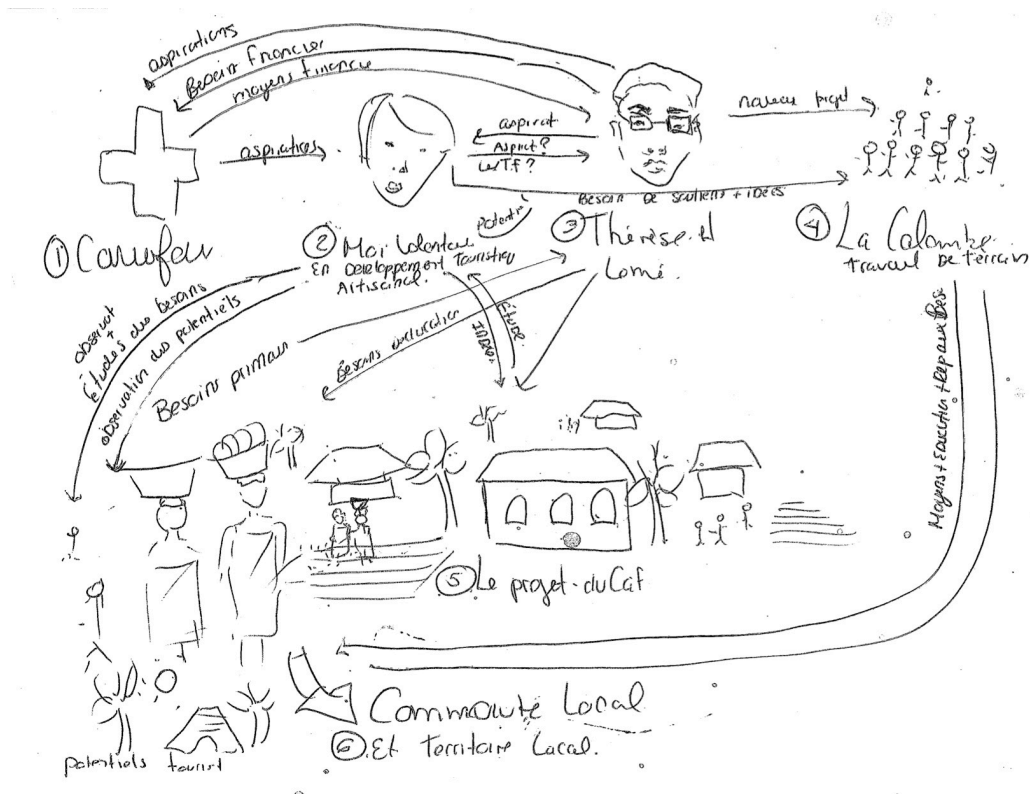 aspirations
Besoin financier
moyens finance
aspirations
aspirat
Aspirat?
LesTf?
nouveau projet
Besoin de soutiens + idées
Potenti
① Carrefour
② Moi Volontaire
En Développement Touristique
Artisanal.
③ Thérèse. et
Lomé.
④ La Colombe.
travail De terrain
observat
+
Études des besoins
observation des potentiels
Besoins primair
Besoins éducation
Étude
Moyens + Education + Repas
⑤ Le projet du Caf
Communauté Local
⑥ Et Territoire Local.
potentiels
tourist